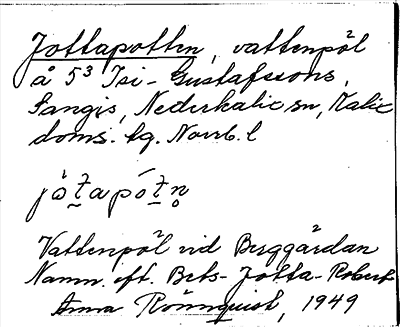 Jottapotten, vattenpöl
å 5³ Isi-Gustafssons,
Sangis, Nederkalix sn, Kalix
doms. tg. Norrb. l
Vattenpöl vid Berggårdan
Namn. eft. Bets-Jotta-Robert
Anna Rönnquist, 1949